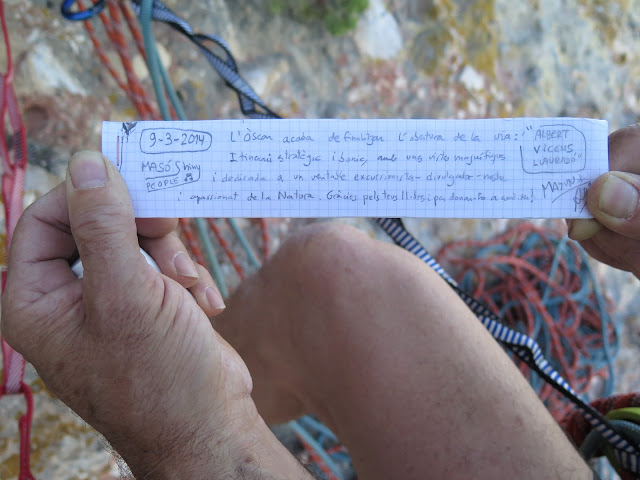 9-3-2014 L'Òscar acaba de finalitzar L'obertura de la via: "ALBERT
MASÓ Shiny Itinerari estratègic i bonic, amb una vista magnífiques VICENS
PEOPLE i dedicada a un veritable excursionista-divulgador- LLAURADÓ"
i apassionat de la Natura. Gràcies pels teus llibres i per donar-ho a